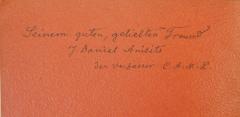 Seinem guten, geliebten Freund
J Daniel Anisits
der Verfasser C. A. M. L.